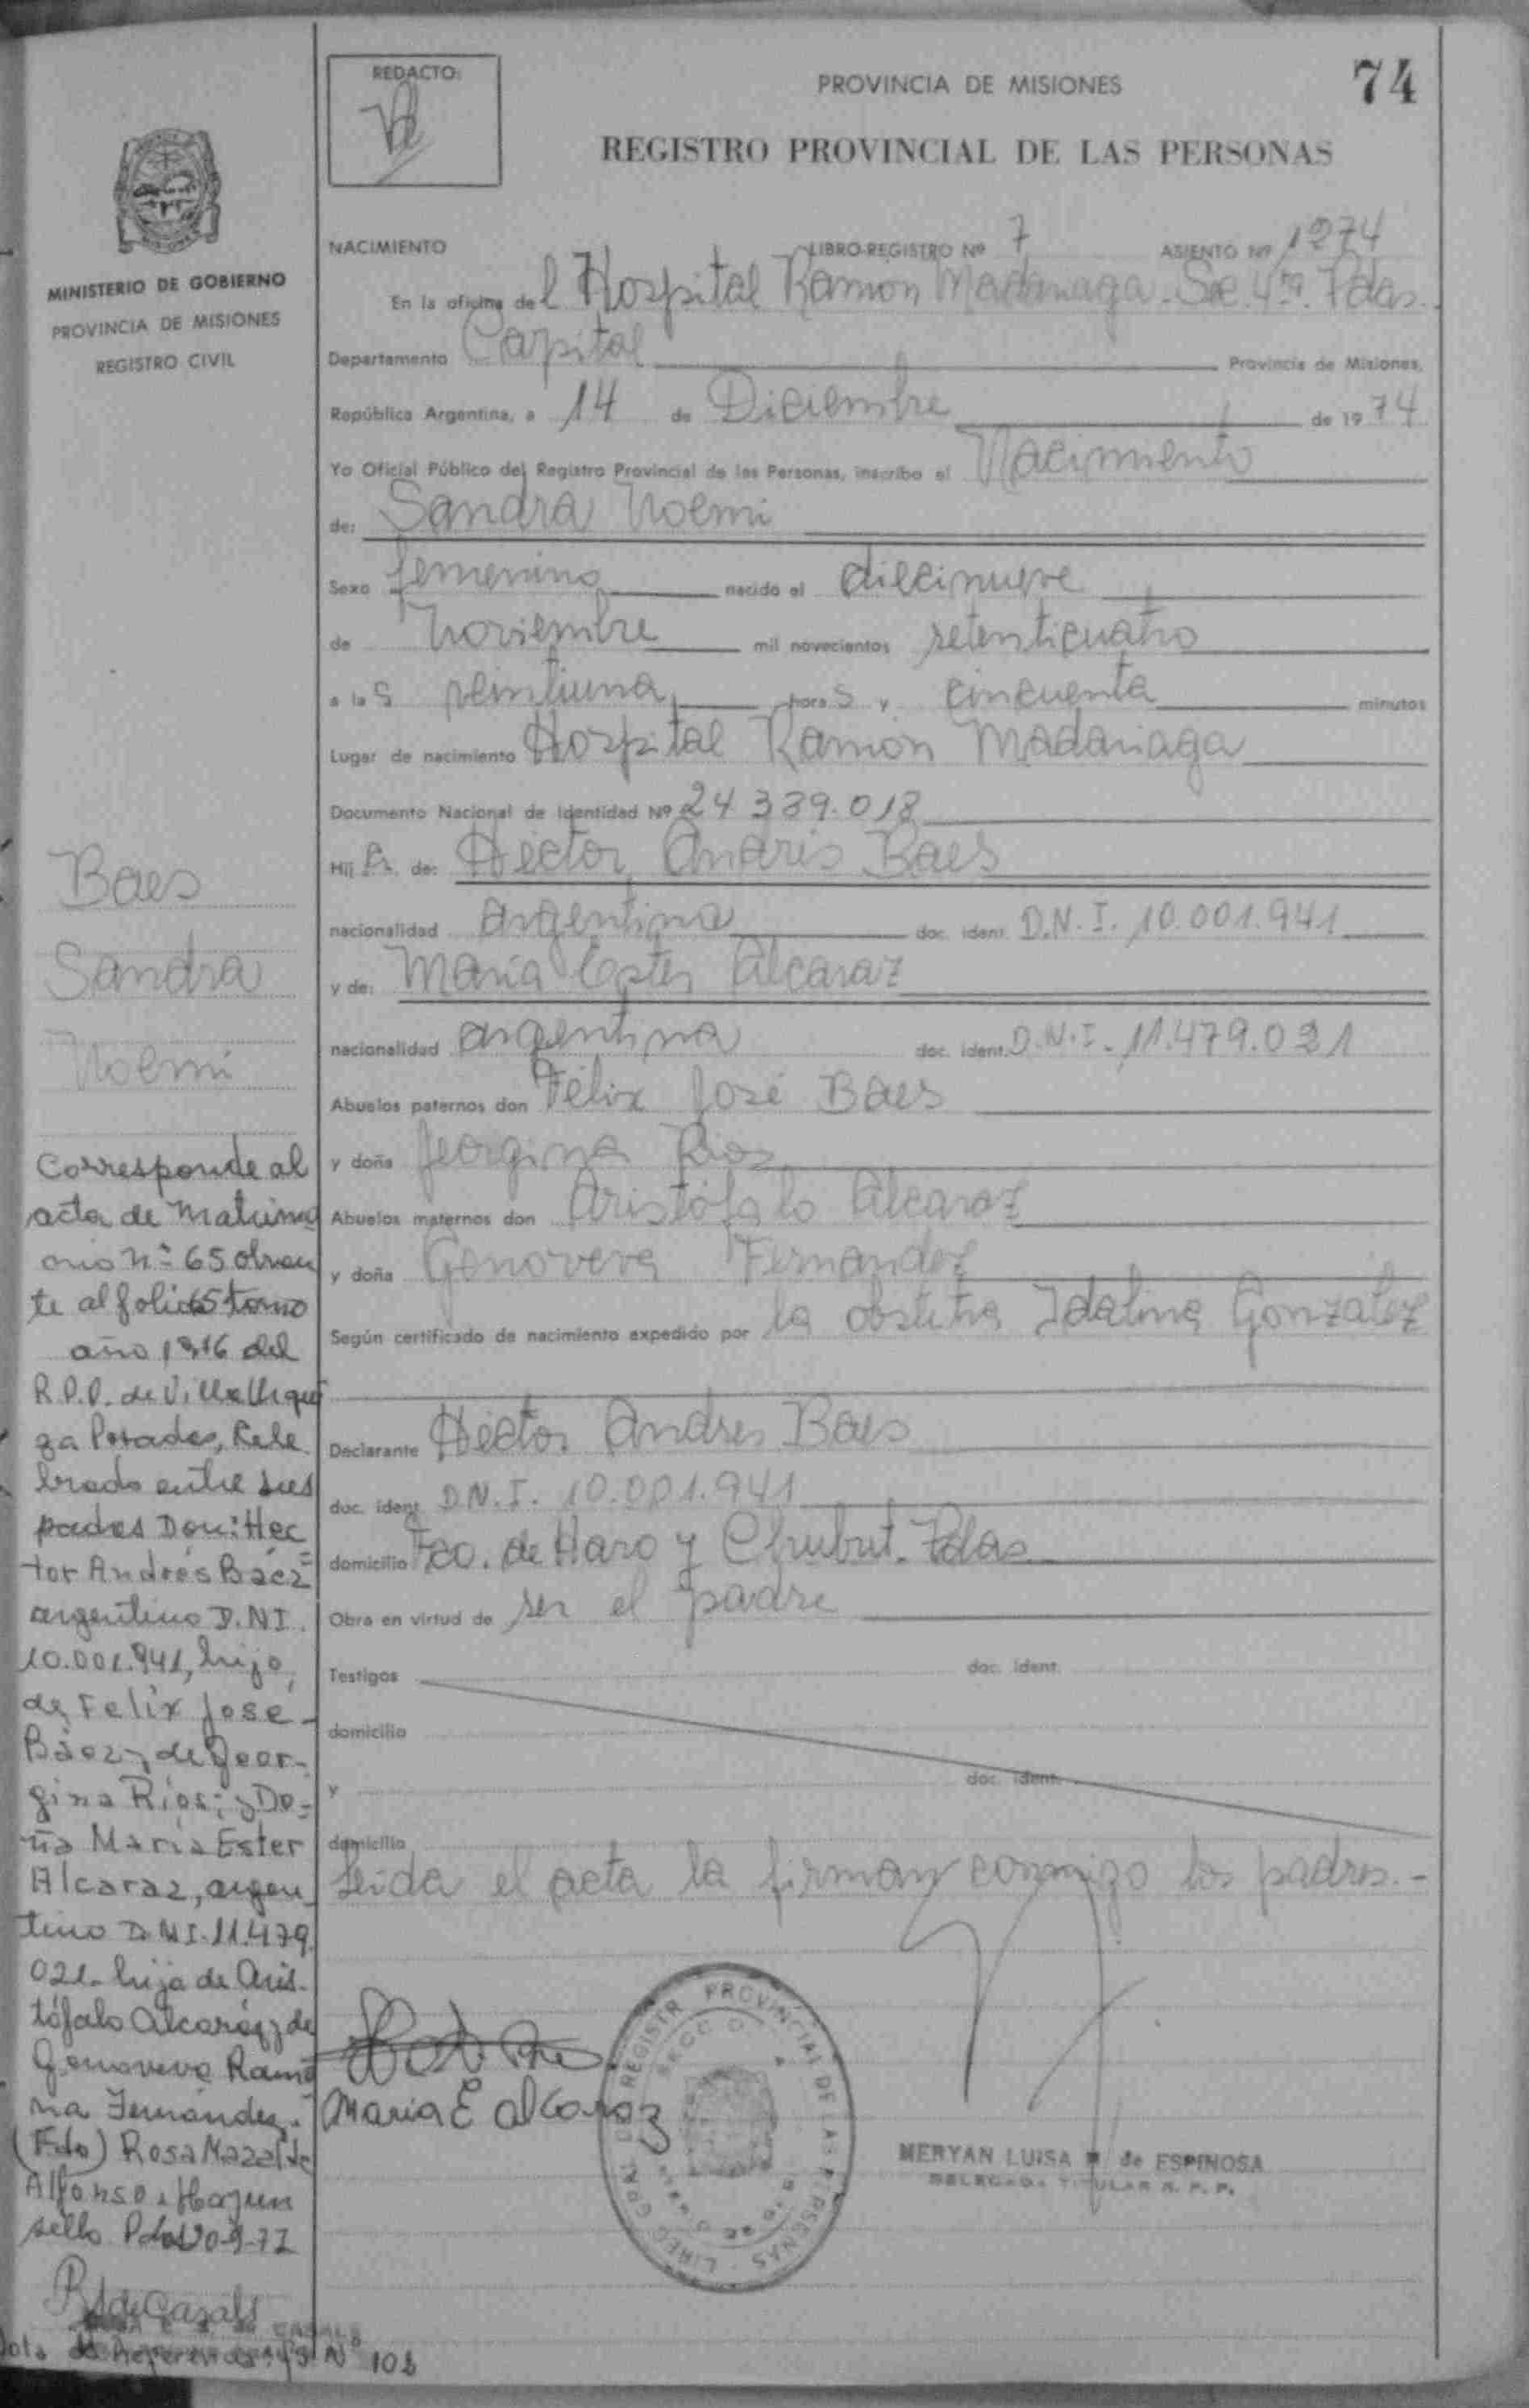 REDACTO:
PROVINCIA DE MISIONES
74
REGISTRO PROVINCIAL DE LAS PERSONAS
MINISTERIO DE GOBIERNO
PROVINCIA DE MISIONES
REGISTRO CIVIL
NACIMIENTO LIBRO-REGISTRO Nº 7 ASIENTO Nº 1274
En la oficina del Hospital Ramón Madariaga. Sec. 4ta. Pdas.
Departamento Capital Provincia de Misiones,
República Argentina, a 14 de Diciembre de 1974
Yo Oficial Público del Registro Provincial de las Personas, inscribo el Nacimiento
de: Sandra Noemi
Sexo femenino nacido el diecinueve
de Noviembre mil novecientos setenticuatro
a las veintiuna horas y cincuenta minutos
Lugar de nacimiento Hospital Ramón Madariaga
Documento Nacional de Identidad Nº 24.339.018
Hija de: Héctor Andrés Baes
nacionalidad argentina doc. ident. D.N.I. 10.001.941
y de: María Ester Alcaraz
nacionalidad argentina doc. ident. D.N.I. 11.479.021
Abuelos paternos don Félix José Baes
y doña Jeorgina Rios
Abuelos maternos don Aristófalo Alcaraz
y doña Genoveva Fernandez
Según certificado de nacimiento expedido por la obstetra Idalina Gonzalez
Declarante Héctor Andrés Baes
doc. ident. D.N.I. 10.001.941
domicilio Fco. de Haro y Chubut. Pdas
Obra en virtud de ser el padre
Testigos doc. ident.
domicilio
y doc. ident.
domicilio
Leída el acta la firman conmigo los padres.-
Maria E alcaraz
MERYAN LUISA de ESPINOSA
DELEGADA TITULAR R. P. P.
REGISTR PROVINCIAL DE LAS PERSONAS
Baes
Sandra
Noemi
Corresponde al
acta de Matrimo
nio nº 65 obran
te al folio 65 tomo
año 1976 del
R.P.P. de Villa Urqui
za Posadas, Cele
brado entre sus
padres Don: Héc
tor Andrés Báez
argentino D.N.I.
10.001.941, hijo
de Felix José
Báez y de Geor-
gina Ríos; y Do-
ña María Ester
Alcaraz, argen
tino D.N.I. 11.479.
021- hija de Aris-
tófalo Alcaraz y de
Genoveva Ramo
na Fernández.
(Fdo) Rosa Maza de
Alfonso. Hay un
sello Pdas 20-9-77
CASALS
Nº 108